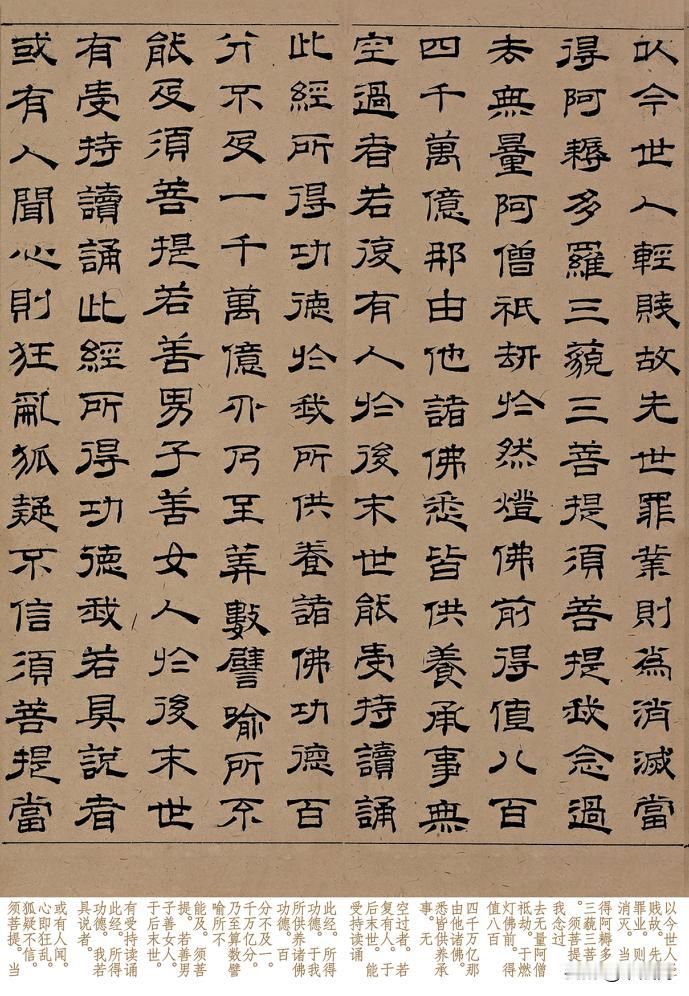 以今世人輕賤故先世罪業則為消滅當
得阿耨多羅三藐三菩提須菩提我念過
去無量阿僧祇劫於然燈佛前得值八百
四千萬億那由他諸佛悉皆供養承事無
空過者若復有人於後末世能受持讀誦
此經所得功德於我所供養諸佛功德百
分不及一千萬億分乃至算數譬喻所不
能及須菩提若善男子善女人於後末世
有受持讀誦此經所得功德我若具說者
或有人聞心則狂亂狐疑不信須菩提當
以今世人
贱故。先
罪业，则
消灭。当
得阿耨多
三藐三菩
。须菩提
我念过
去无量阿僧
祇劫。于燃
灯佛前。得
值八百
四千万亿那
由他诸佛。
悉皆供养承
事。无
空过者。若
复有人。于
后末世。能
受持读诵
此经。所得
功德。于我
所供养诸佛
功德。百
分不及一。
千万亿分。
乃至算数譬
喻所不
能及。须菩
提。若善男
子善女人。
于后末世。
有受持读诵
此经。所得
功德。我若
具说者。
或有人闻。
心即狂乱。
狐疑不信。
须菩提。当